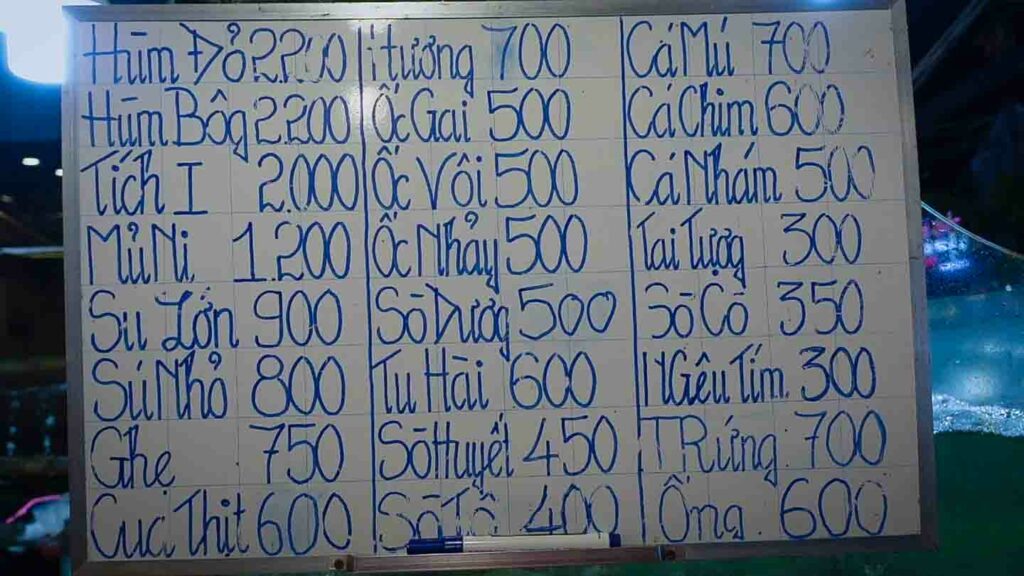 Hùm Đỏ 2200
Hùm Bôg 2200
Tích I 2.000
Mủ Ni 1.200
Sú Lớn 900
Sú Nhỏ 800
Ghẹ 750
Cua Thịt 600
Hương 700
Ốc Gai 500
Ốc Vôi 500
Ốc Nhảy 500
Sò Dươg 500
Tu Hài 600
Sò Huyết 450
Sò Tộ 400
Cá Mú 700
Cá Chim 600
Cá Nhám 500
Tai Tượg 300
Sò Cồ 350
NGêu Tím 300
TRứng 700
Ống 600